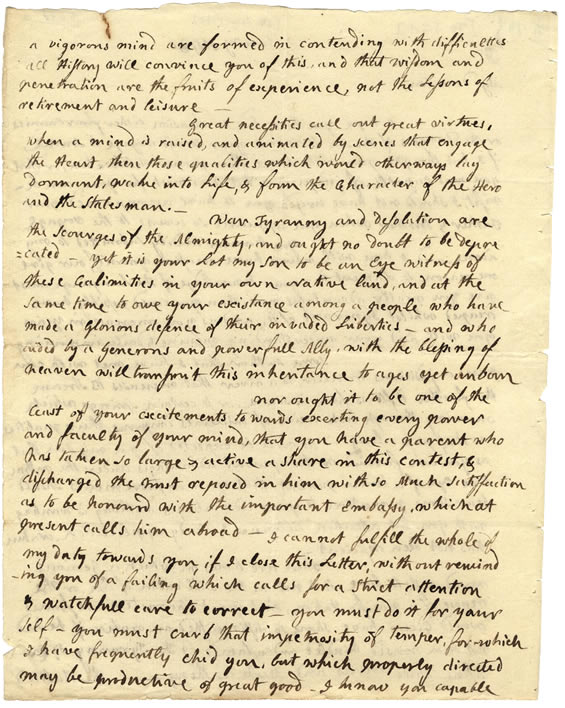 a vigorous mind are formed in contending with difficulties
all History will convince you of this, and that wisdom and
penetration are the fruits of experience, not the Lessons of
retirement and leisure —
Great necessities call out great virtues,
when a mind is raised, and animated by scenes that engage
the Heart, then those qualities which would otherways lay
dormant, wake into Life, & form the Character of the Hero
and the Statesman. —
War Tyranny and Desolation are
the Scourges of the Almighty, and ought no doubt to be depre
=cated — yet it is your Lot my Son to be an Eye witness of
these Calimities in your own native land, and at the
same time to owe your existance among a people who have
made a glorious defence of their invaded Liberties — and who
aided by a Generous and powerfull Ally, with the blessing of
heaven will transmit this inheritance to ages yet unborn
nor ought it to be one of the
least of your excitements towards exerting every power
and faculty of your mind, that you have a parent who
has taken so large & active a share in this contest, &
discharged the trust reposed in him with so much satisfaction
as to be honourd with the important Embassy, which at
present calls him abroad — I cannot fulfill the whole of
my duty towards you, if I close this Letter, without remind
-ing you of a failing which calls for a strict attention
& watchfull care to correct — you must do it for your
self — you must curb that impetuosity of temper, for which
I have frequently chid you, but which properly directed
may be productive of great good — I know you capable